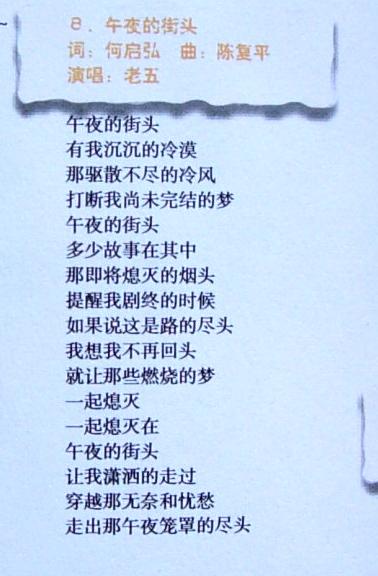 8．午夜的街头
词：何启弘　曲：陈复平
演唱：老五
午夜的街头
有我沉沉的冷漠
那驱散不尽的冷风
打断我尚未完结的梦
午夜的街头
多少故事在其中
那即将熄灭的烟头
提醒我剧终的时候
如果说这是路的尽头
我想我不再回头
就让那些燃烧的梦
一起熄灭
一起熄灭在
午夜的街头
让我潇洒的走过
穿越那无奈和忧愁
走出那午夜笼罩的尽头